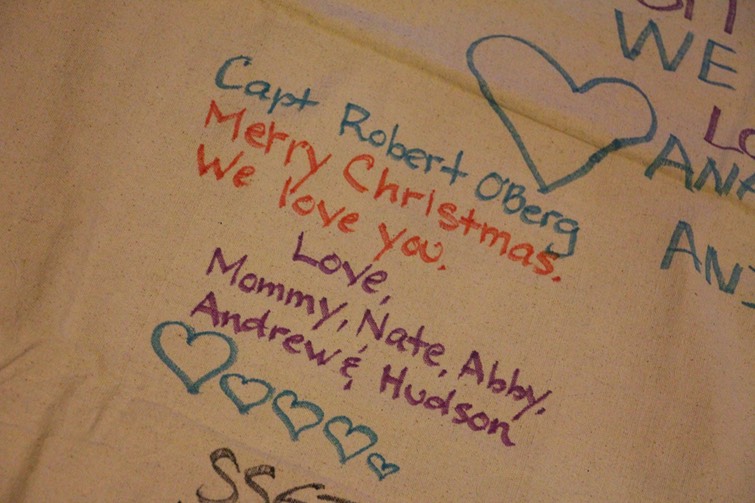 Capt Robert O'Berg
Merry Christmas.
We love you.
Love,
Mommy, Nate, Abby,
Andrew & Hudson
WE